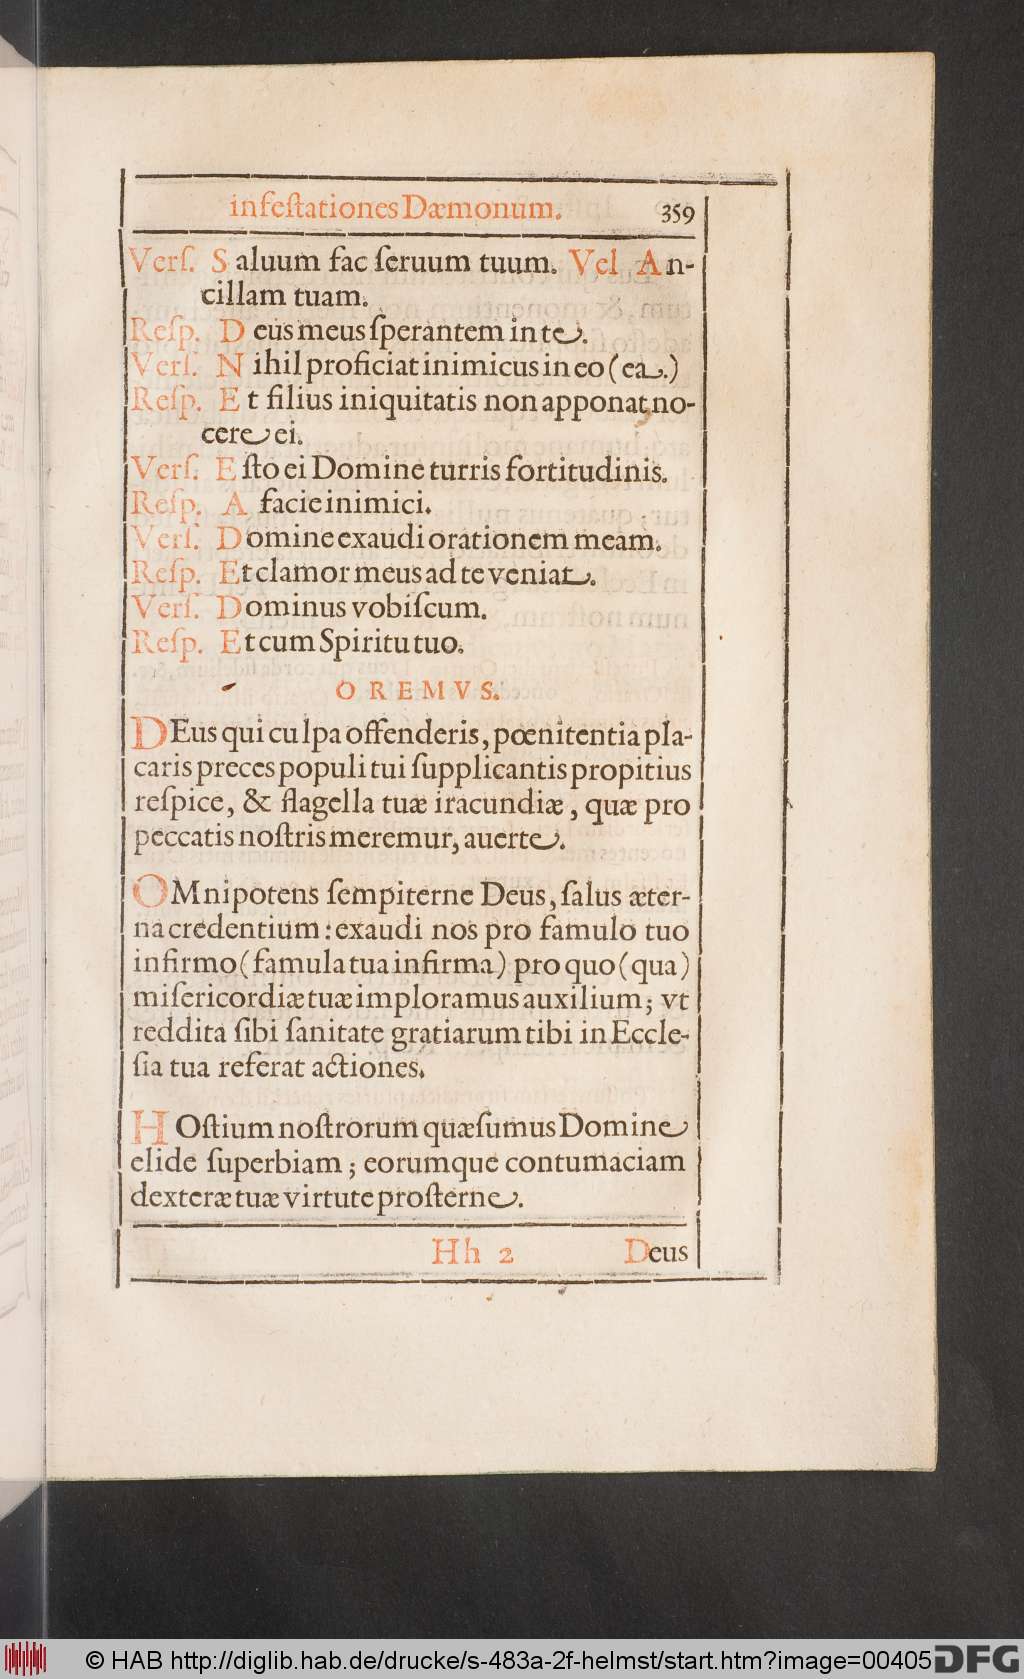 infeſtationes Dæmonum. 359
Verſ. Saluum fac ſeruum tuum. Vel An-
cillam tuam.
Reſp. Deus meus ſperantem in te.
Verſ. Nihil proficiat inimicus in eo (ea.)
Reſp. Et filius iniquitatis non apponat no-
cere ei.
Verſ. Eſto ei Domine turris fortitudinis.
Reſp. A facie inimici.
Verſ. Domine exaudi orationem meam.
Reſp. Et clamor meus ad te veniat.
Verſ. Dominus vobiſcum.
Reſp. Et cum Spiritu tuo.
OREMVS.
DEus qui culpa offenderis, pœnitentia pla-
caris preces populi tui ſupplicantis propitius
reſpice, & flagella tuæ iracundiæ, quæ pro
peccatis noſtris meremur, auerte.
OMnipotens ſempiterne Deus, ſalus æter-
na credentium: exaudi nos pro famulo tuo
infirmo (famula tua infirma) pro quo (qua)
miſericordiæ tuæ imploramus auxilium; vt
reddita ſibi ſanitate gratiarum tibi in Eccle-
ſia tua referat actiones.
HOſtium noſtrorum quæſumus Domine
elide ſuperbiam; eorumque contumaciam
dexteræ tuæ virtute proſterne.
Hh 2 Deus
© HAB http://diglib.hab.de/drucke/s-483a-2f-helmst/start.htm?image=00405 DFG